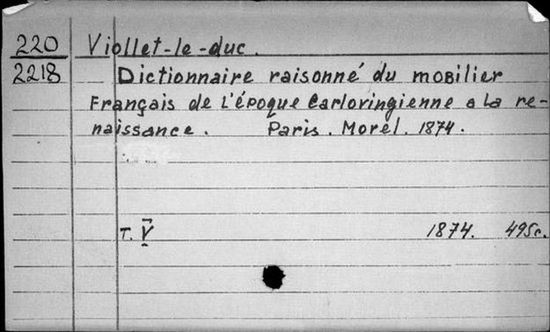 220 Viollet-le-duc.
2218 Dictionnaire raisonné du mobilier
Français de l'époque Carlovingienne a la re-
naissance. Paris. Morel. 1874.
T. V 1874. 495c.